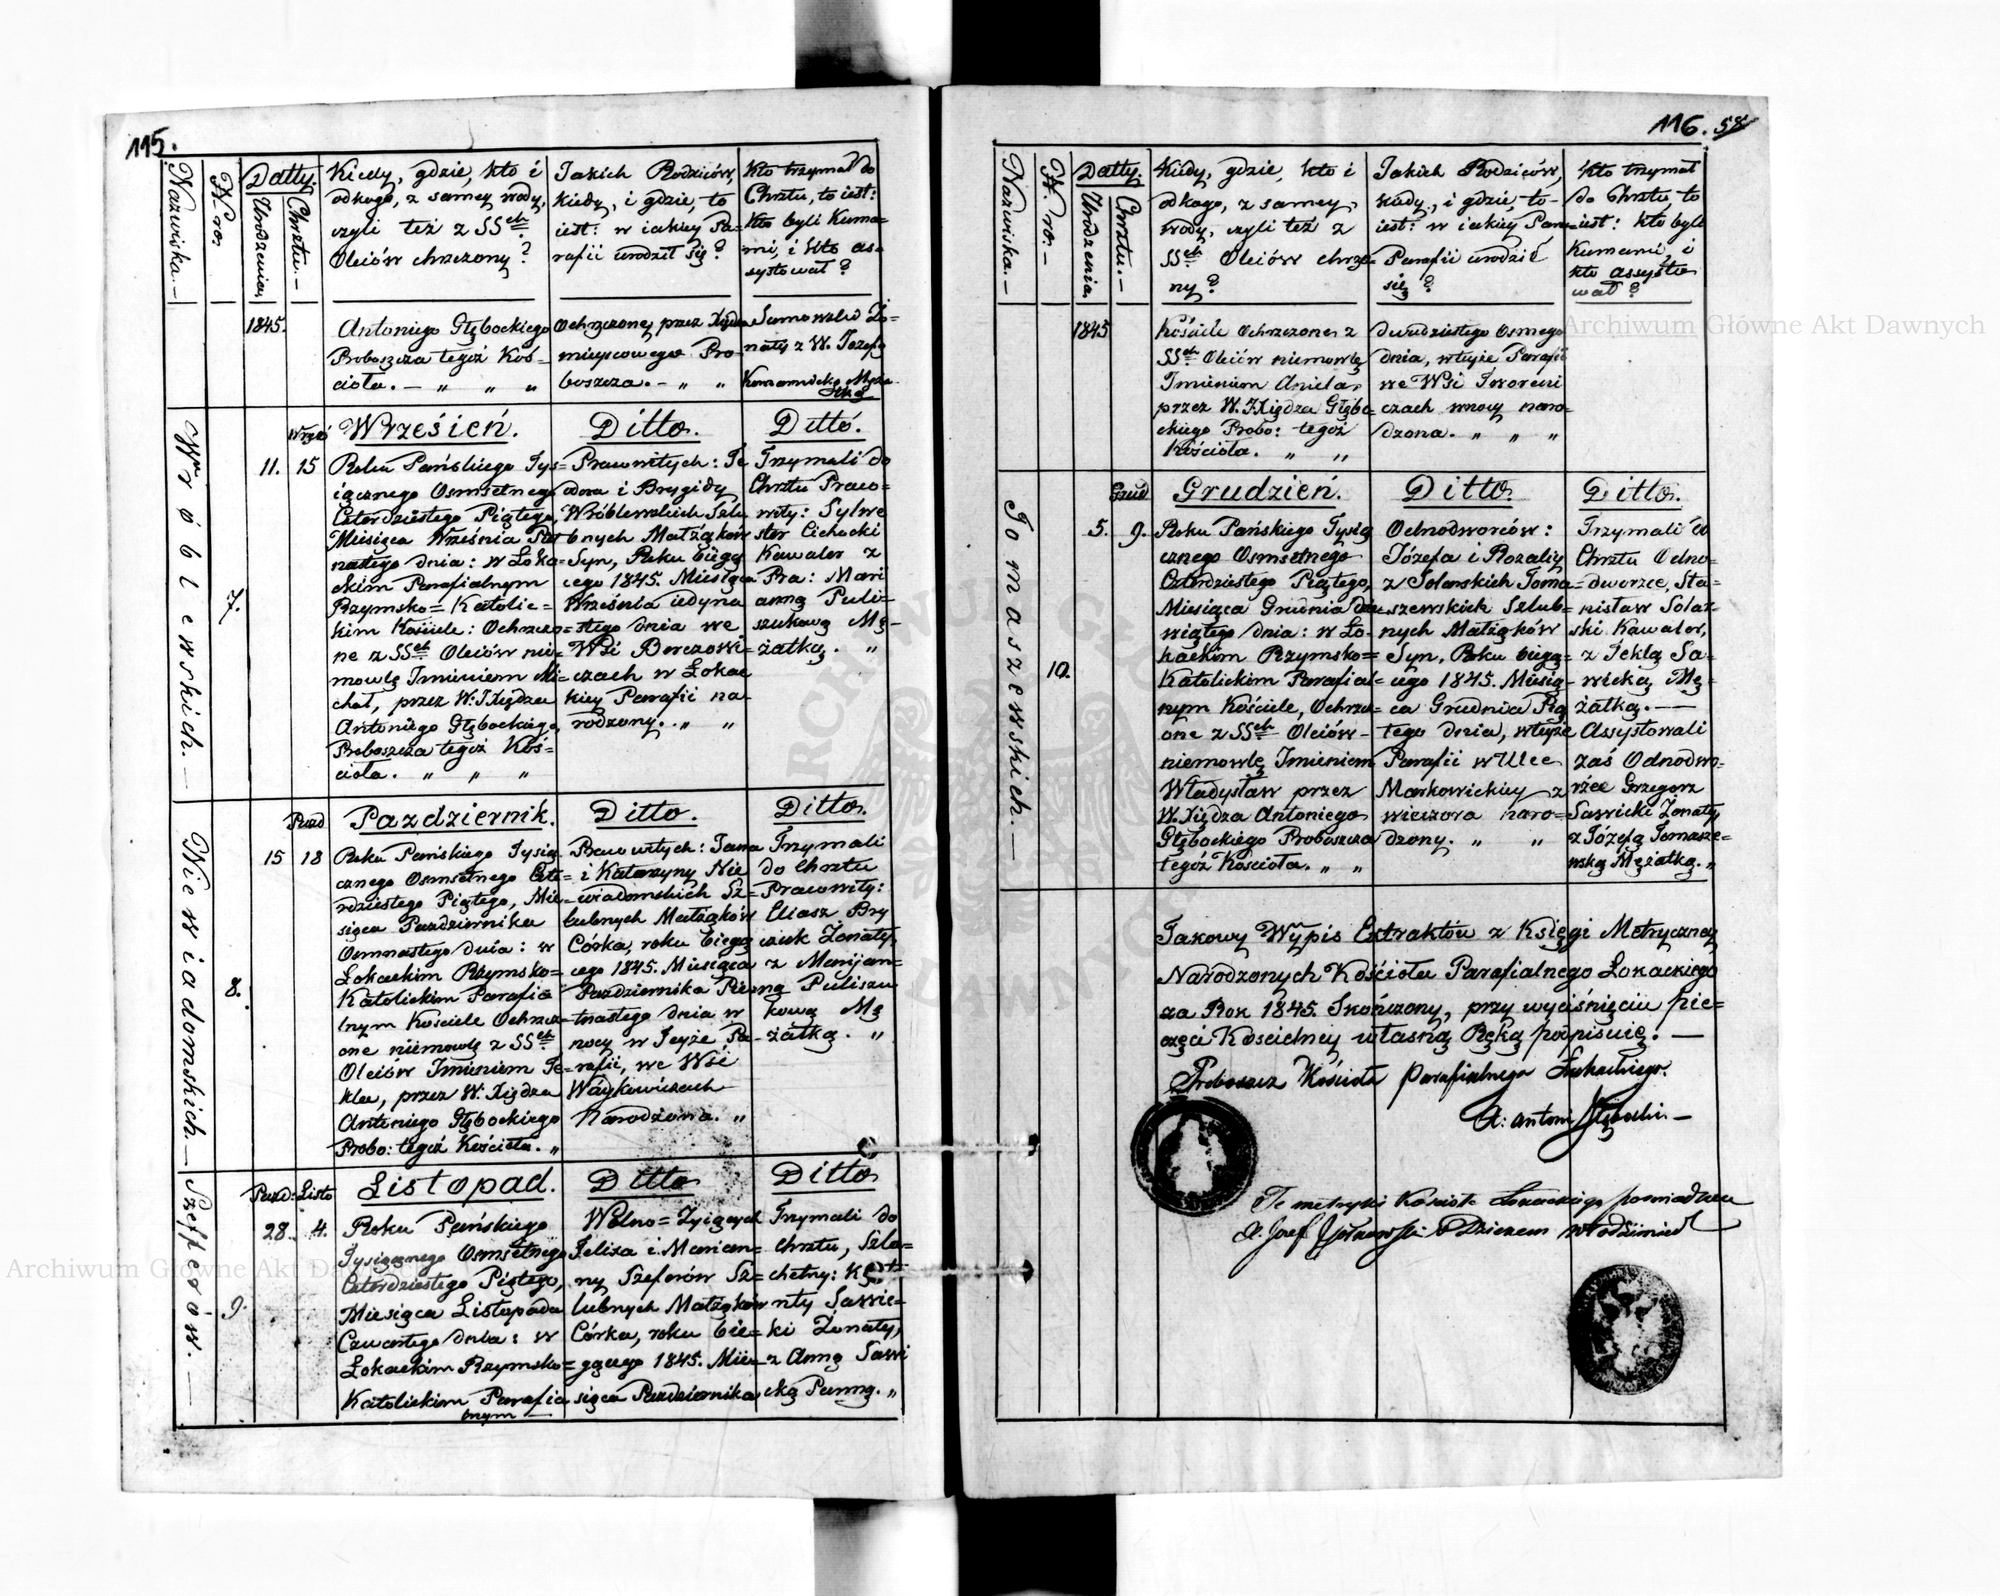 115.
Nazwiska.—
N.ro.
Datty.
Urodzenia.
Chrztu.—
Kiedy, gdzie, kto i
od kogo, z samey wody,
czyli też z SSch
Oleiów chrzczony?
Jakich Rodziców,
kiedy, i gdzie, to
iest: w iakiey Pa=
rafii urodził się?
Kto trzymał do
Chrztu, to iest:
kto byli Kuma=
mi, i kto as=
systował?
1845.
Antoniego Głębockiego
Proboszcza tegoż Koś=
cioła. — " " "
Ochrzczoney przez Xiędza
mieyscowego Pro=
boszcza. — " "
naty z W. Józefą
Wróblewskich.—
7.
Wrześ
11. 15
Wrzesień.
Roku Pańskiego Tys=
iącznego Osmsetnego
Czterdziestego Piątego,
Miesiąca Września Pięt
nastego dnia: w Łoka=
ckim Parafialnym
Rzymsko=Katolic=
kim Kościele: Ochrzczo=
ne z SSch Oleiów nie=
mowlę Imieniem Mi=
chał, przez W. Xiędza
Antoniego Głębockiego,
Proboszcza tegoż Koś=
cioła. " " "
Ditto.
Pracowitych: Te
odora i Brygidy
Wróblewskich Szlu
bnych Małżąków
Syn, Roku bieżą
cego 1845. Miesiąca
Września iedyna
stego dnia we
Wsi Berezowi=
czach w Łokac
kiey Parafii na=
rodzony. " "
Ditto.
Trzymali do
Chrztu Praco=
wity: Sylwe
ster Cichocki
Kawaler z
Pra: Mari
anną Puli=
szukową Mę=
żatką. "
Niewiadomskich.—
8.
Pazd
15 18
Pazdziernik.
Roku Pańskiego Tysią
cznego Osmsetnego Czte=
rdziestego Piątego, Mie=
siąca Pazdziernika
Osmnastego dnia: w
Łokackim Rzymsko=
Katolickim Parafia=
lnym Kościele Ochrzcz=
one niemowlę z SSch
Oleiów Imieniem Te=
kla, przez W. Xiędza
Antoniego Głębockiego
Probo: tegoż Kościoła. "
Ditto.
Pracowitych: Jana
i Katarzyny Nie
wiadomskich Sz=
lubnych Małżąków
Córka, roku bieżą
cego 1845. Miesiąca
Pazdziernika Pię
tnastego dnia w
nocy w Teyże Pa=
rafii, we Wsi
Waykowiczach
Narodzona. "
Ditto.
Trzymali
do Chrztu
Pracowity:
Eliasz Bry
czuk Żonaty,
z Maryian=
ną Puliszu
kową Mę
żatką. "
Szefferów.—
9.
Pazd: Listo
28. 4.
Listopad.
Roku Pańskiego
Tysiącznego Osmsetnego
Czterdziestego Piątego,
Miesiąca Listopada
Czwartego dnia: w
Łokackim Rzymsko=
Katolickim Parafia
lnym —
Ditto
Wolno=Żyiących
Felixa i Marian=
ny Szeferów Sz=
lubnych Małżąków
Córka, roku bie=
gącego 1845. Mie=
siąca Pazdziernika
Ditto
Trzymali do
Chrztu, Szla=
chetny:
nty Sawic=
ki Żonaty,
z Anną Sawi
cką Panną. "
116. 58
Nazwiska.—
N.ro.—
Datty.
Urodzenia.
Chrztu.—
Kiedy, gdzie, kto i
od kogo, z samey
wody, czyli też z
SSch Oleiów chrzczo=
ny?
Jakich Rodziców,
kiedy, i gdzie, to=
iest: w iakiey
Parafii urodził
się?
Kto trzymał
do Chrztu, to
iest: kto byli
Kumami, i
kto assysto
wał?
1845
Kościele Ochrzczone z
SSch Oleiów niemowlę
Imieniem Aniela,
przez W. Xiędza Głębo
ckiego Probo: tegoż
Kościoła. " "
dwudziestego Osmego
dnia, wteyże Parafii
we Wsi Tworeni
czach wnocy naro=
dzona. " " "
Tomaszewskich.—
10.
Grud
5. 9.
Grudzień.
Roku Pańskiego Tysią
cznego Osmsetnego
Czterdziestego Piątego,
Miesiąca Grudnia Dzie
wiątego dnia: w Ło=
kackim Rzymsko=
Katolickim Parafial=
nym Kościele, Ochrzcz
one z SSch Oleiów=
niemowlę Imieniem
Władysław przez
W. Xiędza Antoniego
Głębockiego Proboszcza
tegoż Kościoła. " "
Ditto.
Odnodworców:
Józefa i Rozalii
z Solarskich Toma=
szewskich Szlub=
nych Małżąków
Syn, Roku bieżą=
cego 1845. Miesią=
ca Grudnia Pią
tego dnia, wteyże
Parafii w Ulce
Markowickiey z
wieczora naro=
dzony. " "
Ditto.
Trzymali do
Chrztu Odno=
dworzec, Sta=
nisław Solar
ski Kawaler,
z Teklą Sa=
wicką Mę=
żatką. —
Assystowali
zaś Odnodwo=
rzec Grzegorz
Sawicki Żonaty,
z Józefą Tomasze=
wską Mężatką. "
Takowy Wypis Extraktów z Księgi Metryczney
Narodzonych Kościoła Parafialnego Łokackiego
za Rok 1845. Skończony, przy wyciśnięciu pie=
częci Kościelney własną Ręką podpisuię. —
Proboszcz Kościoła Parafialnego Łokackiego.
X. Antoni Głębocki —
Te metryki Kościoła Łokackiego poswiadczam
X. Józef
Archiwum Główne Akt Dawnych
Archiwum Główne Akt Dawnych